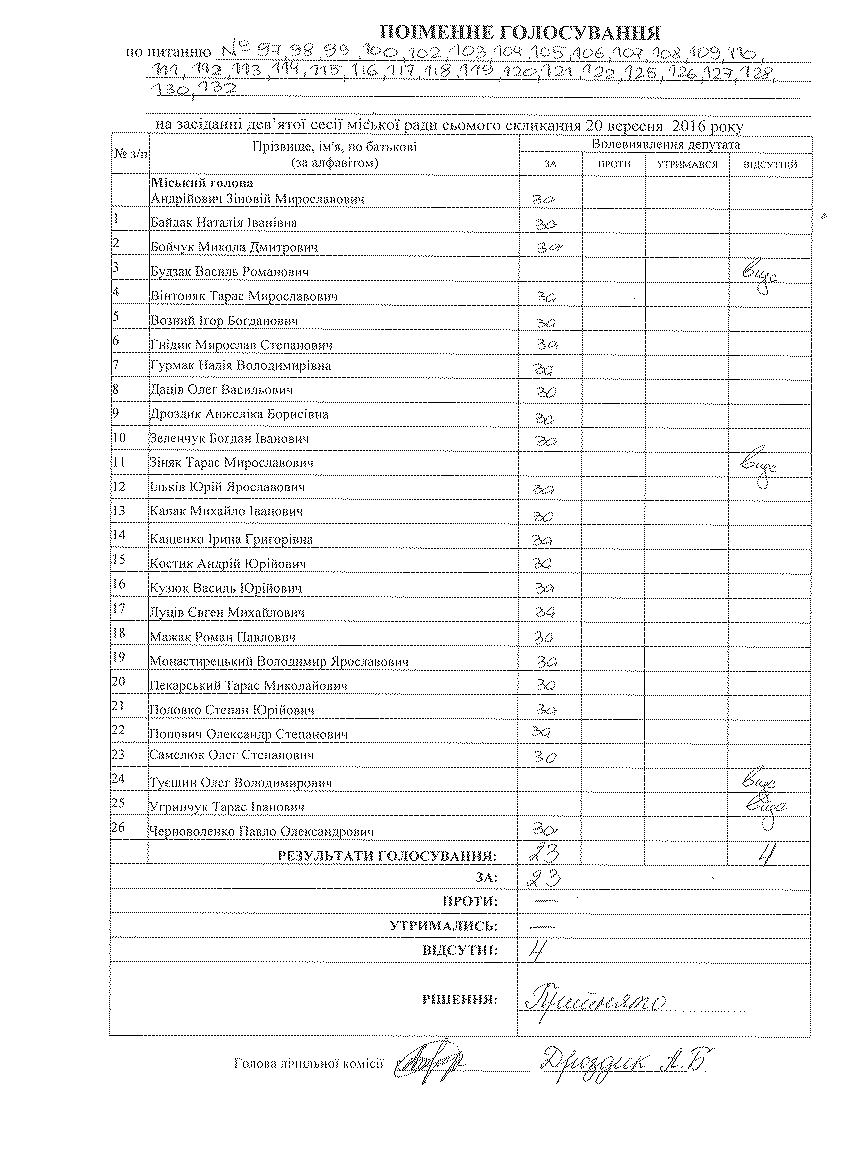 ПОІМЕННЕ ГОЛОСУВАННЯ
по питанню № 97,98,99,100,102,103,104,105,106,107,108,109,110,
111,112,113,114,115,116,117,118,119,120,121,122,125,126,127,128,
130,132
на засіданні дев'ятої сесії міської ради сьомого скликання 20 вересня 2016 року
№ з/п Прізвище, ім'я, по батькові (за алфавітом) Волевиявлення депутата
ЗА ПРОТИ УТРИМАВСЯ ВІДСУТНІЙ
Міський голова
Андрійович Зіновій Мирославович за
1 Байдак Наталія Іванівна за
2 Бойчук Микола Дмитрович за
3 Будзак Василь Романович відс
4 Вінтоняк Тарас Мирославович за
5 Возний Ігор Богданович за
6 Гнідик Мирослав Степанович за
7 Гурмак Надія Володимирівна за
8 Даців Олег Васильович за
9 Дроздик Анжеліка Борисівна за
10 Зеленчук Богдан Іванович за
11 Зіняк Тарас Мирославович відс
12 Ільків Юрій Ярославович за
13 Капак Михайло Іванович за
14 Каценко Ірина Григорівна за
15 Костик Андрій Юрійович за
16 Кузюк Василь Юрійович за
17 Луців Євген Михайлович за
18 Мажак Роман Павлович за
19 Монастирецький Володимир Ярославович за
20 Пекарський Тарас Миколайович за
21 Половко Степан Юрійович за
22 Попович Олександр Степанович за
23 Самелюк Олег Степанович за
24 Туєшин Олег Володимирович відс
25 Угринчук Тарас Іванович відс
26 Черноволенко Павло Олександрович за
РЕЗУЛЬТАТИ ГОЛОСУВАННЯ: 23 4
ЗА: 23
ПРОТИ: —
УТРИМАЛИСЬ: —
ВІДСУТНІ: 4
РІШЕННЯ: Прийнято
Голова лічильної комісії Дроздик А.Б